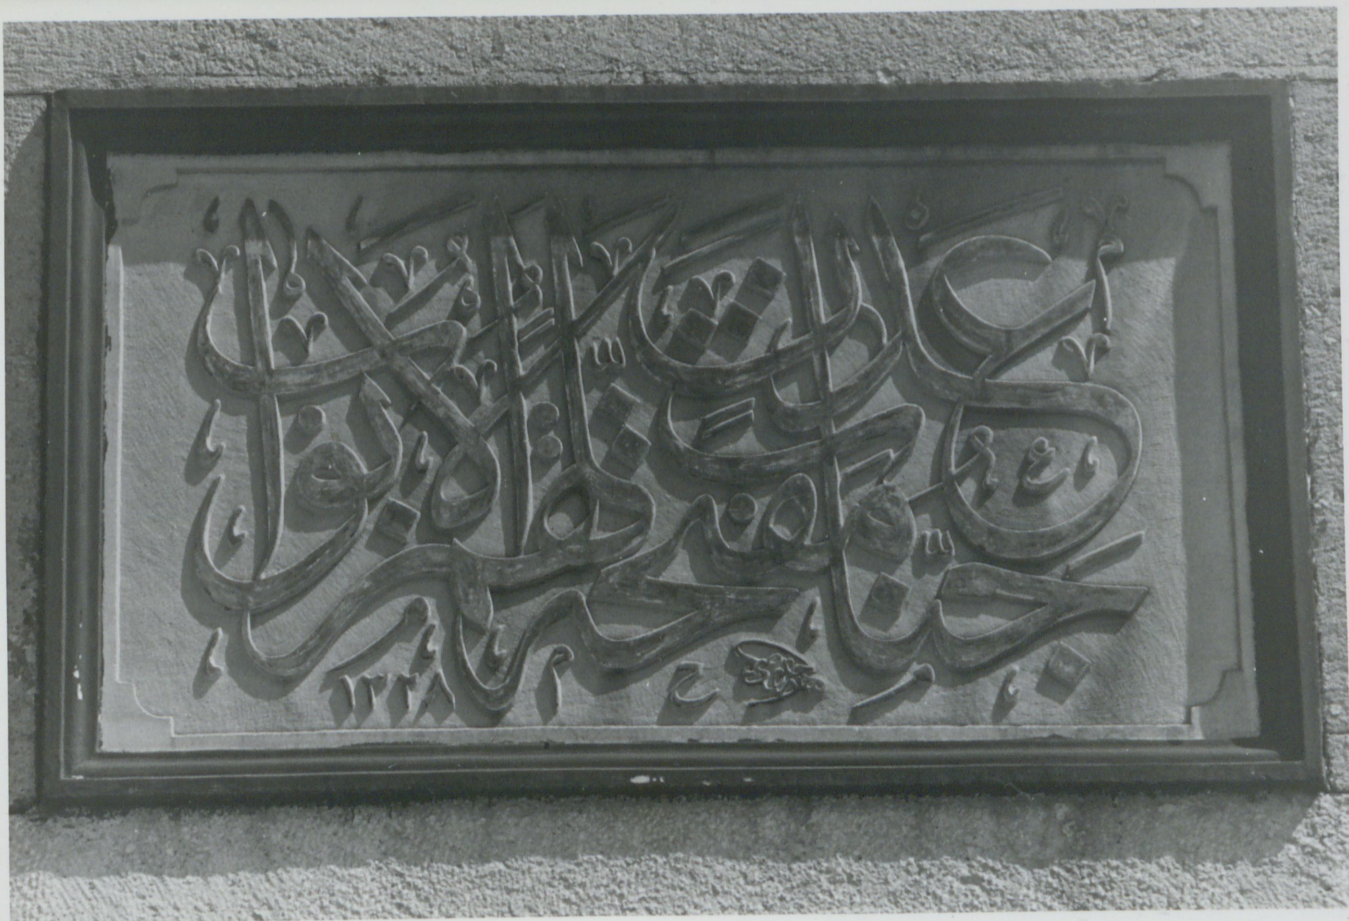 جنات عدن مفتحة لهم الابواب
١٣٣٨